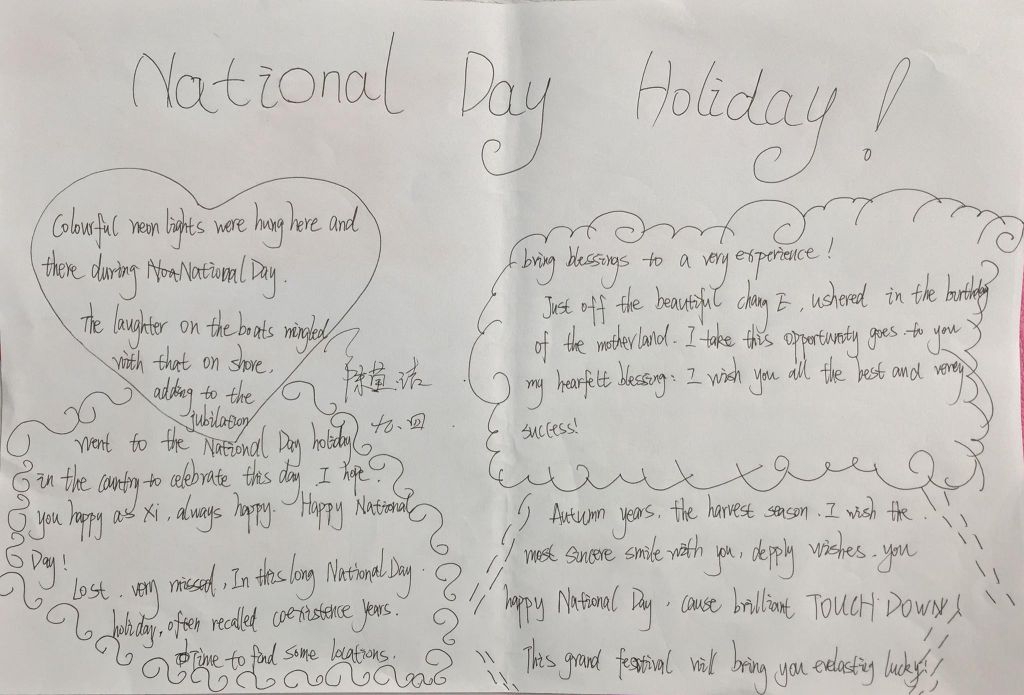 National Day Holiday!
Colourful neon lights were hung here and
there during National Day.
The laughter on the boats mingled
with that on shore,
adding to the
jubilation
七、四
Went to the National Day holiday
in the country to celebrate this day. I hope
you happy as Xi, always happy. Happy National
Day!
Lost, very missed, In this long National Day
holiday, often recalled coexistence years.
Time to find some locations.
bring blessings to a very experience!
Just off the beautiful chang E, ushered in the burthday
of the motherland. I take this opportunity goes to you
my hearfelt blessing: I wish you all the best and verey
success!
Autumn years, the harvest season. I wish the
most sincere smile with you, depply wishes. you
happy National Day, cause brilliant, TOUCH DOWN!
This grand festival will bring you evelasting lucky!